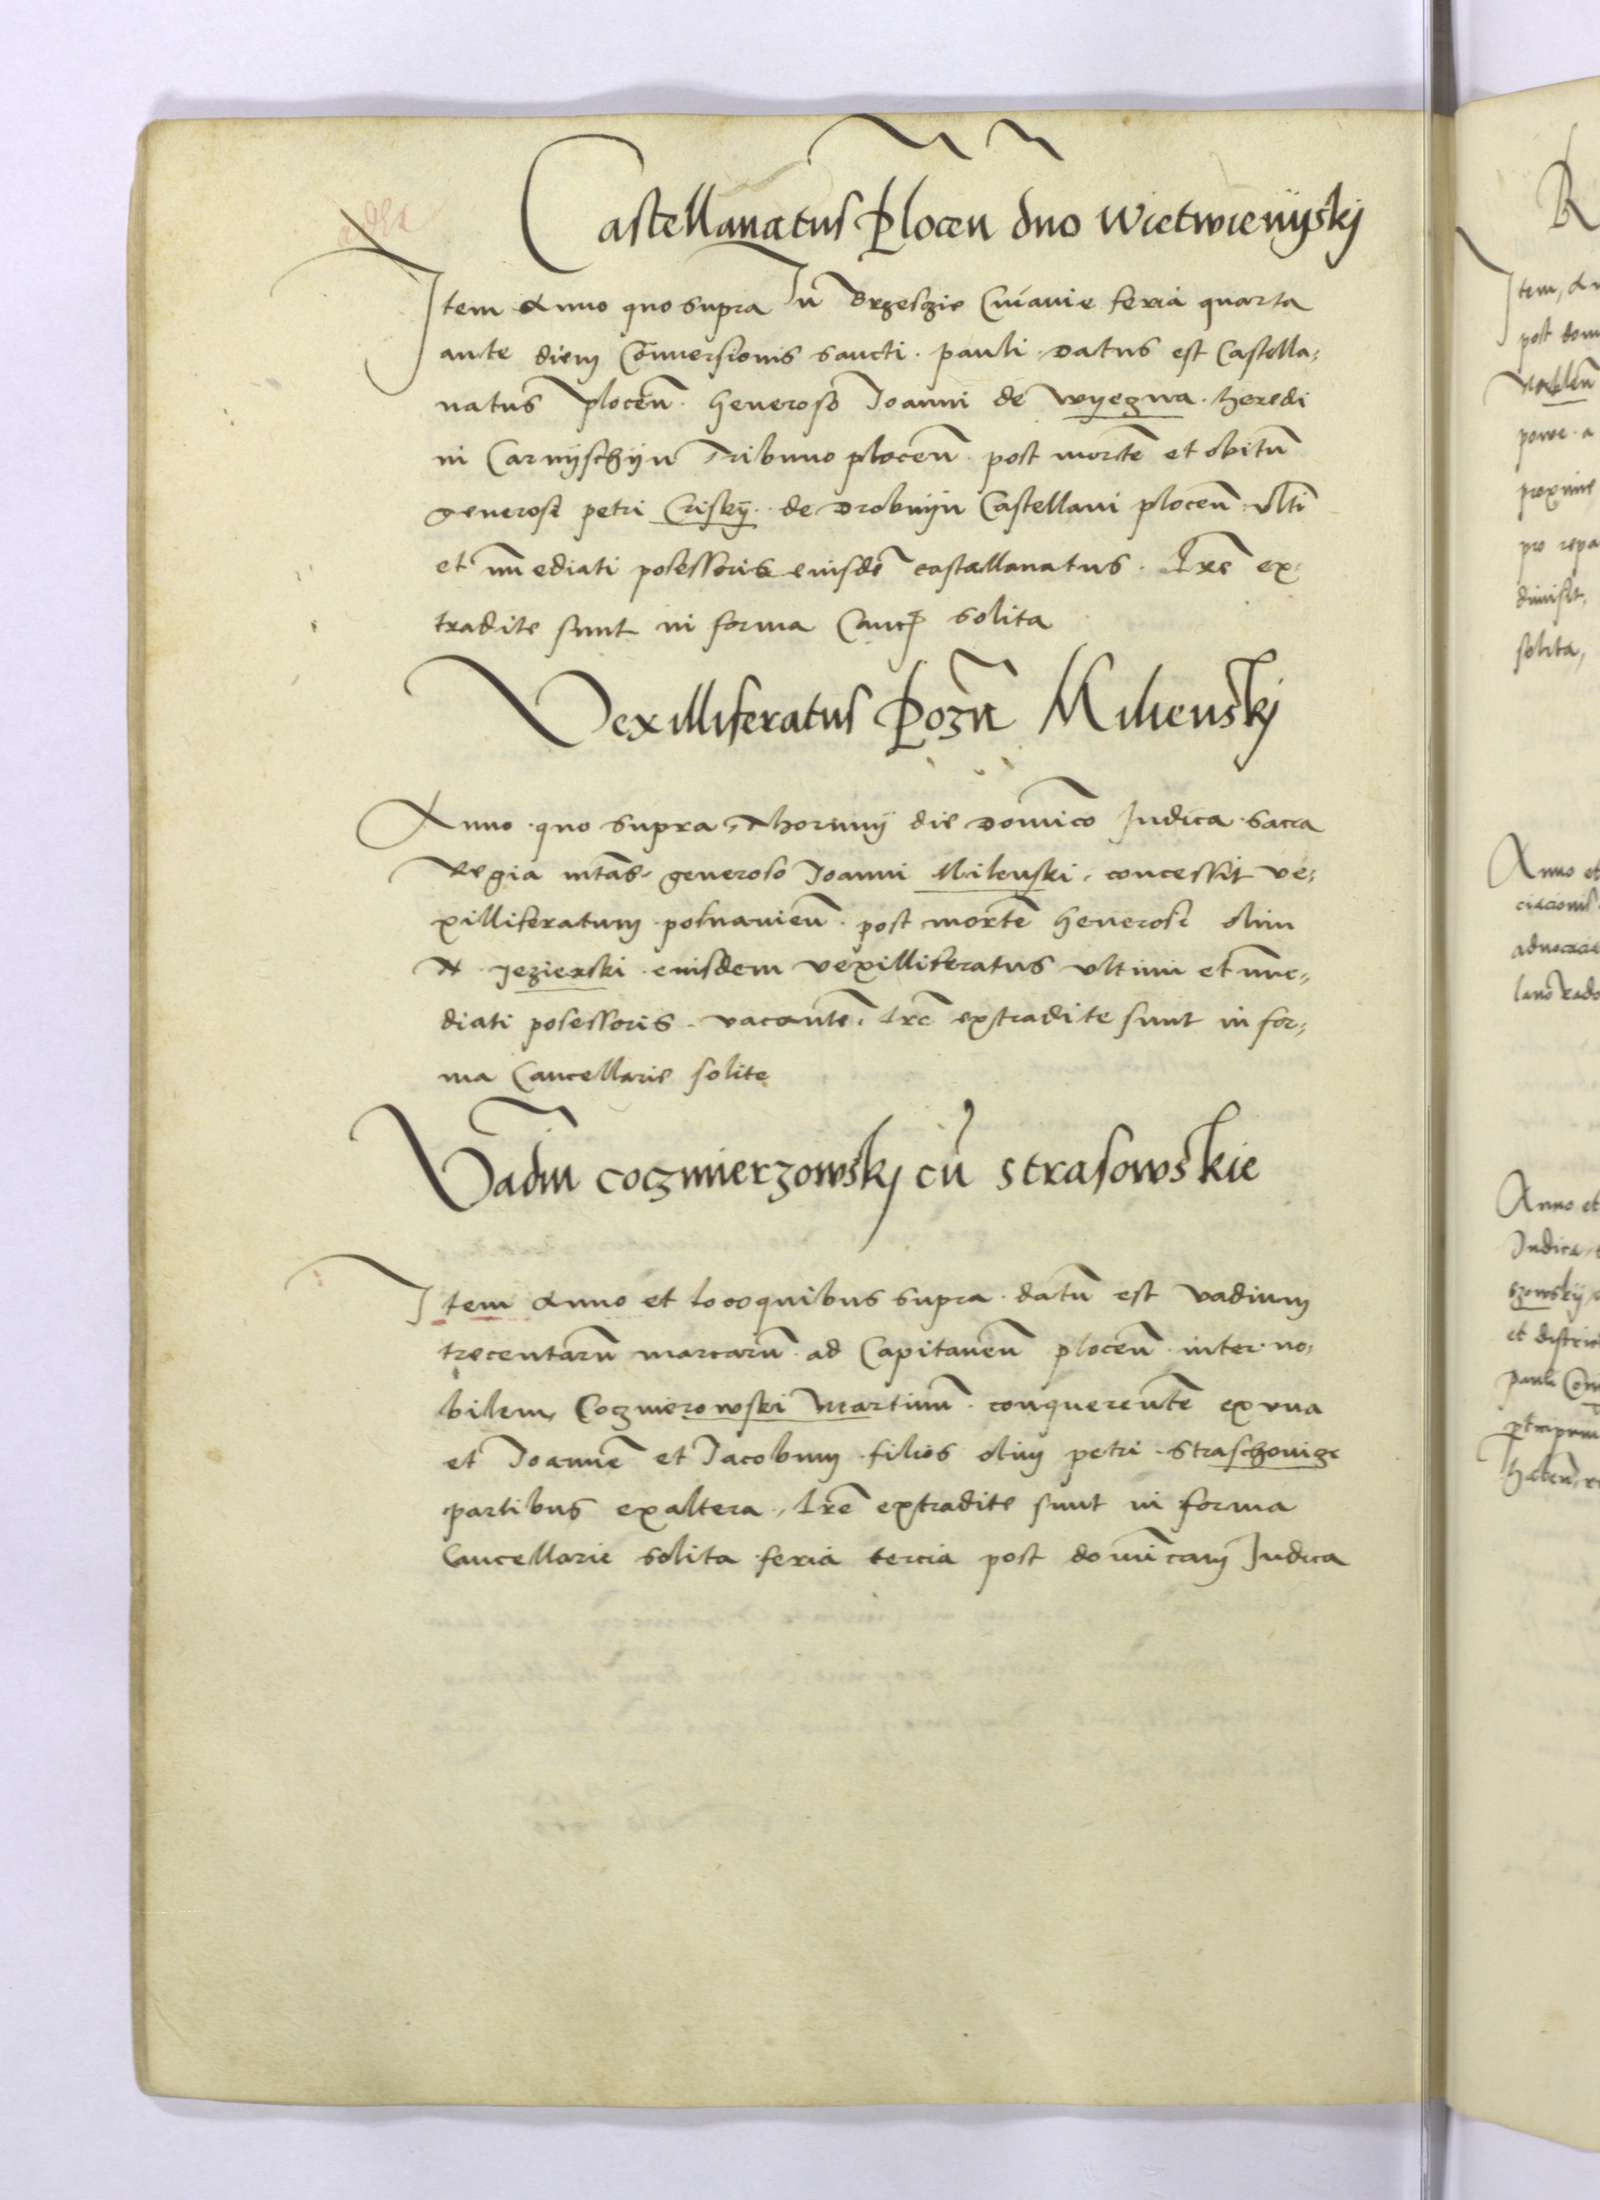 Castellanatus Plocen̄ dno Wietwienÿskj
Item Anno quo supra In Brzesczie Cuiavie feria quarta
ante diem Conversionis sancti pauli Datus est Castella,
natus plocen̄ generoso Joanni de Wyegna heredi
in Carnÿschÿn Tribuno plocen̄ post morte̅ et obitu̅
generosi petri Criskÿ de Drobnÿn Castellani plocen̄ ulti
et im̄ediati posessoris eiusde̅ castellanatus. Lr̄e ex,
tradite sunt in forma Canc solita
Vexilliferatus Pozn̄ Milienskj
Anno quo supra Thorunÿ die Dominico Judica sacra
Regia mtas generoso Joanni Milenski concessit ve,
xilliferatum posnanien̄ post morte̅ generosi olim
N Jezierski eiusdem vexilliferatus ultimi et im̄e,
diati posessoris vacante̅ Lr̄e extradite sunt in for,
ma Cancellarie solite
Vadiu̅ coczmierzowskj cu̅ strasowskie
Item Anno et loco quibus supra datu̅ est vadium
trecentaru̅ marcaru̅ ad Capitaneu̅ plocen̄ inter no,
bilem Coczmerowski Martinu̅ conquerente̅ ex una
et Joanne̅ et Jacobum filios olim petri Straschovize
partibus ex altera, Lr̄e extradite sunt in forma
Cancellarie solita feria tercia post dominicam Judica
Item, An
post dom
pone a
proxime
pro repa
dimisit,
solita,
Anno et
advocacie
Anno et
Judica,
szowskÿ
et district
pauli Con